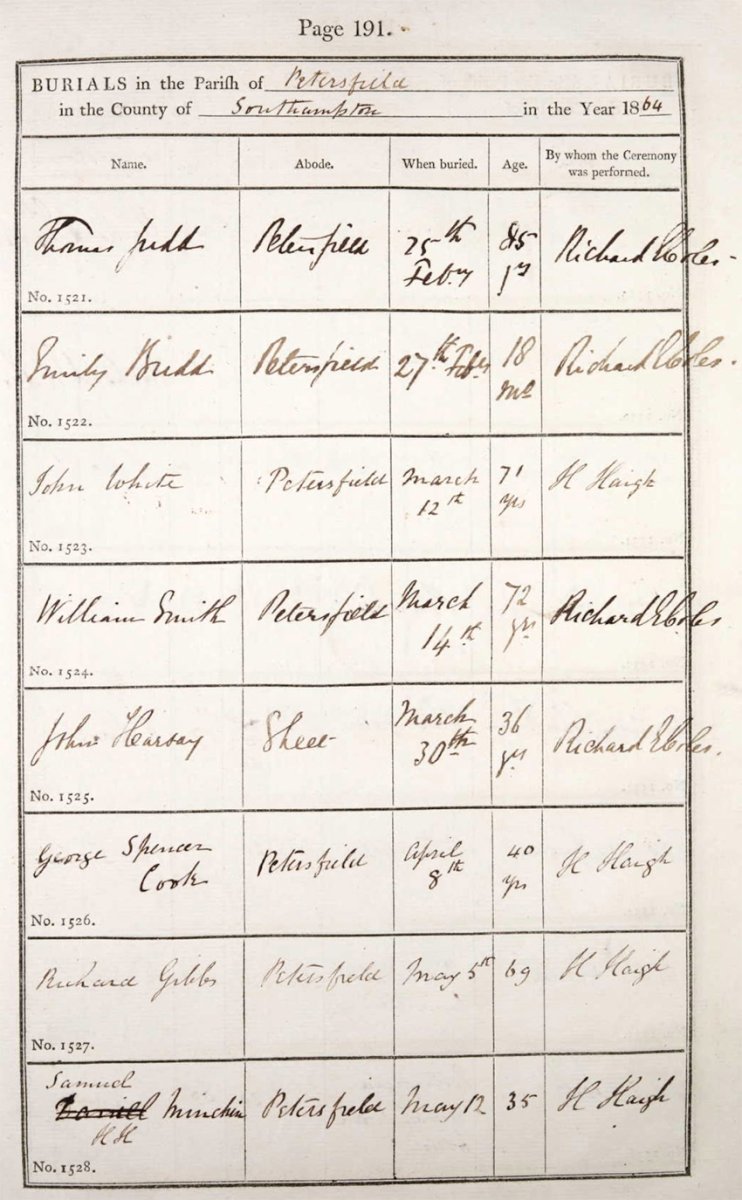 Page 191.
BURIALS in the Parish of Petersfield
in the County of Southampton in the Year 1864
Name. Abode. When buried. Age. By whom the Ceremony was performed.
Thomas Judd Petersfield 25th Feby 85 yrs Richard E Coles
No. 1521.
Emily Budd Petersfield 27th Feby 18 Mo Richard E Coles
No. 1522.
John White Petersfield March 12th 71 yrs H Haigh
No. 1523.
William Smith Petersfield March 14th 72 yrs Richard E Coles
No. 1524.
John Hearsay Sheet March 30th 36 yrs Richard E Coles.
No. 1525.
George Spencer Cook Petersfield April 8th 40 yrs H Haigh
No. 1526.
Richard Gibbs Petersfield May 5th 69 H Haigh
No. 1527.
Samuel
Minchin Petersfield May 12 35 H Haigh
HH
No. 1528.